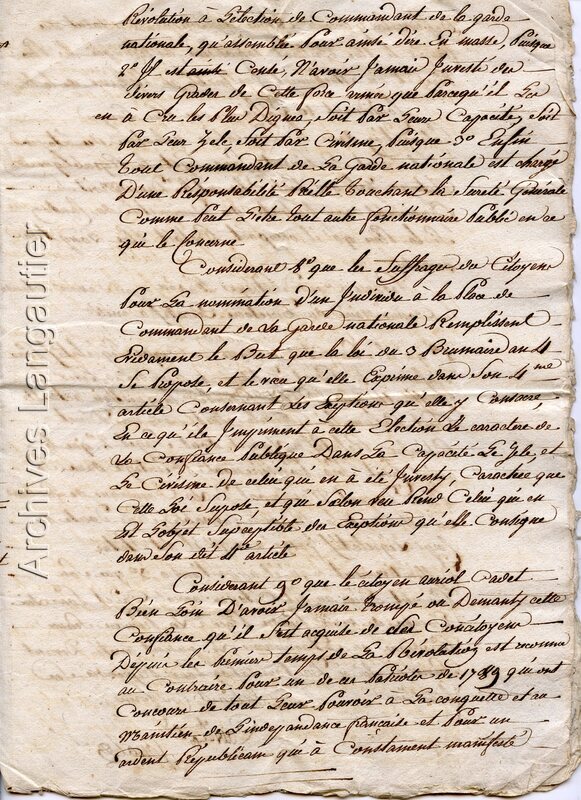 Révolution à L'élection de Commandant de la garde
nationale, qu'assemblé Pour ainsi dire En masse, Puisque
2o Il est ainsi Conté, N'avoir Jamais Investé des
divers Grades de Cette force armée que Parcequ'il Les
en à Cru les Plus Dignes, Soit Par Leurs Capacités, Soit
Par Leur Zele, Soit Par Civisme, Puisque 3o Enfin
Tout Commandant de La Garde nationale est chargé
D'une Responsabilité Réelle Touchant la Sureté Générale
Comme Peut L'etre tout autre fonctionnaire Public en ce
qui le Concerne
Considerant 8o que les Suffrages des Citoyens
Pour La nomination d'un Individu à la Place de
Commandant de La Garde nationale Remplissent
Evidament le But que la loi du 3 Brumaire an 4
Se Propose, et le vœu qu'elle Exprime dans Son 4me
article Consernant Les Exeptions qu'elle y Consacre,
En ce qu'ils Impriment à cette Election Le caractere de
La Confiance Publique Dans La Capacité Le Zele et
Le Civisme de celui qui en à été Investy, Caractere que
Cette Loi Supose, et qui Selon Rend Celui qui en
Est L'objet Susceptible des Exeptions qu'elle Consigne
dans Son dit 4e article
Considerant 9o que le citoyen auriol Cadet
Bien Loin D'avoir Jamais trompé ou Demanty cette
Confiance qu'il S'est acquise de Ses Concitoyens
Depuis les Premiers temps de La Révolution est reconnu
au Contraire Pour un de ces Patriotes de 1789 qui ont
Concouru de tout Leur Pouvoir à La conquette et au
Maintien de L'independance française et Pour un
ardent Républicain qui à Constament manifesté
Archives Langautier